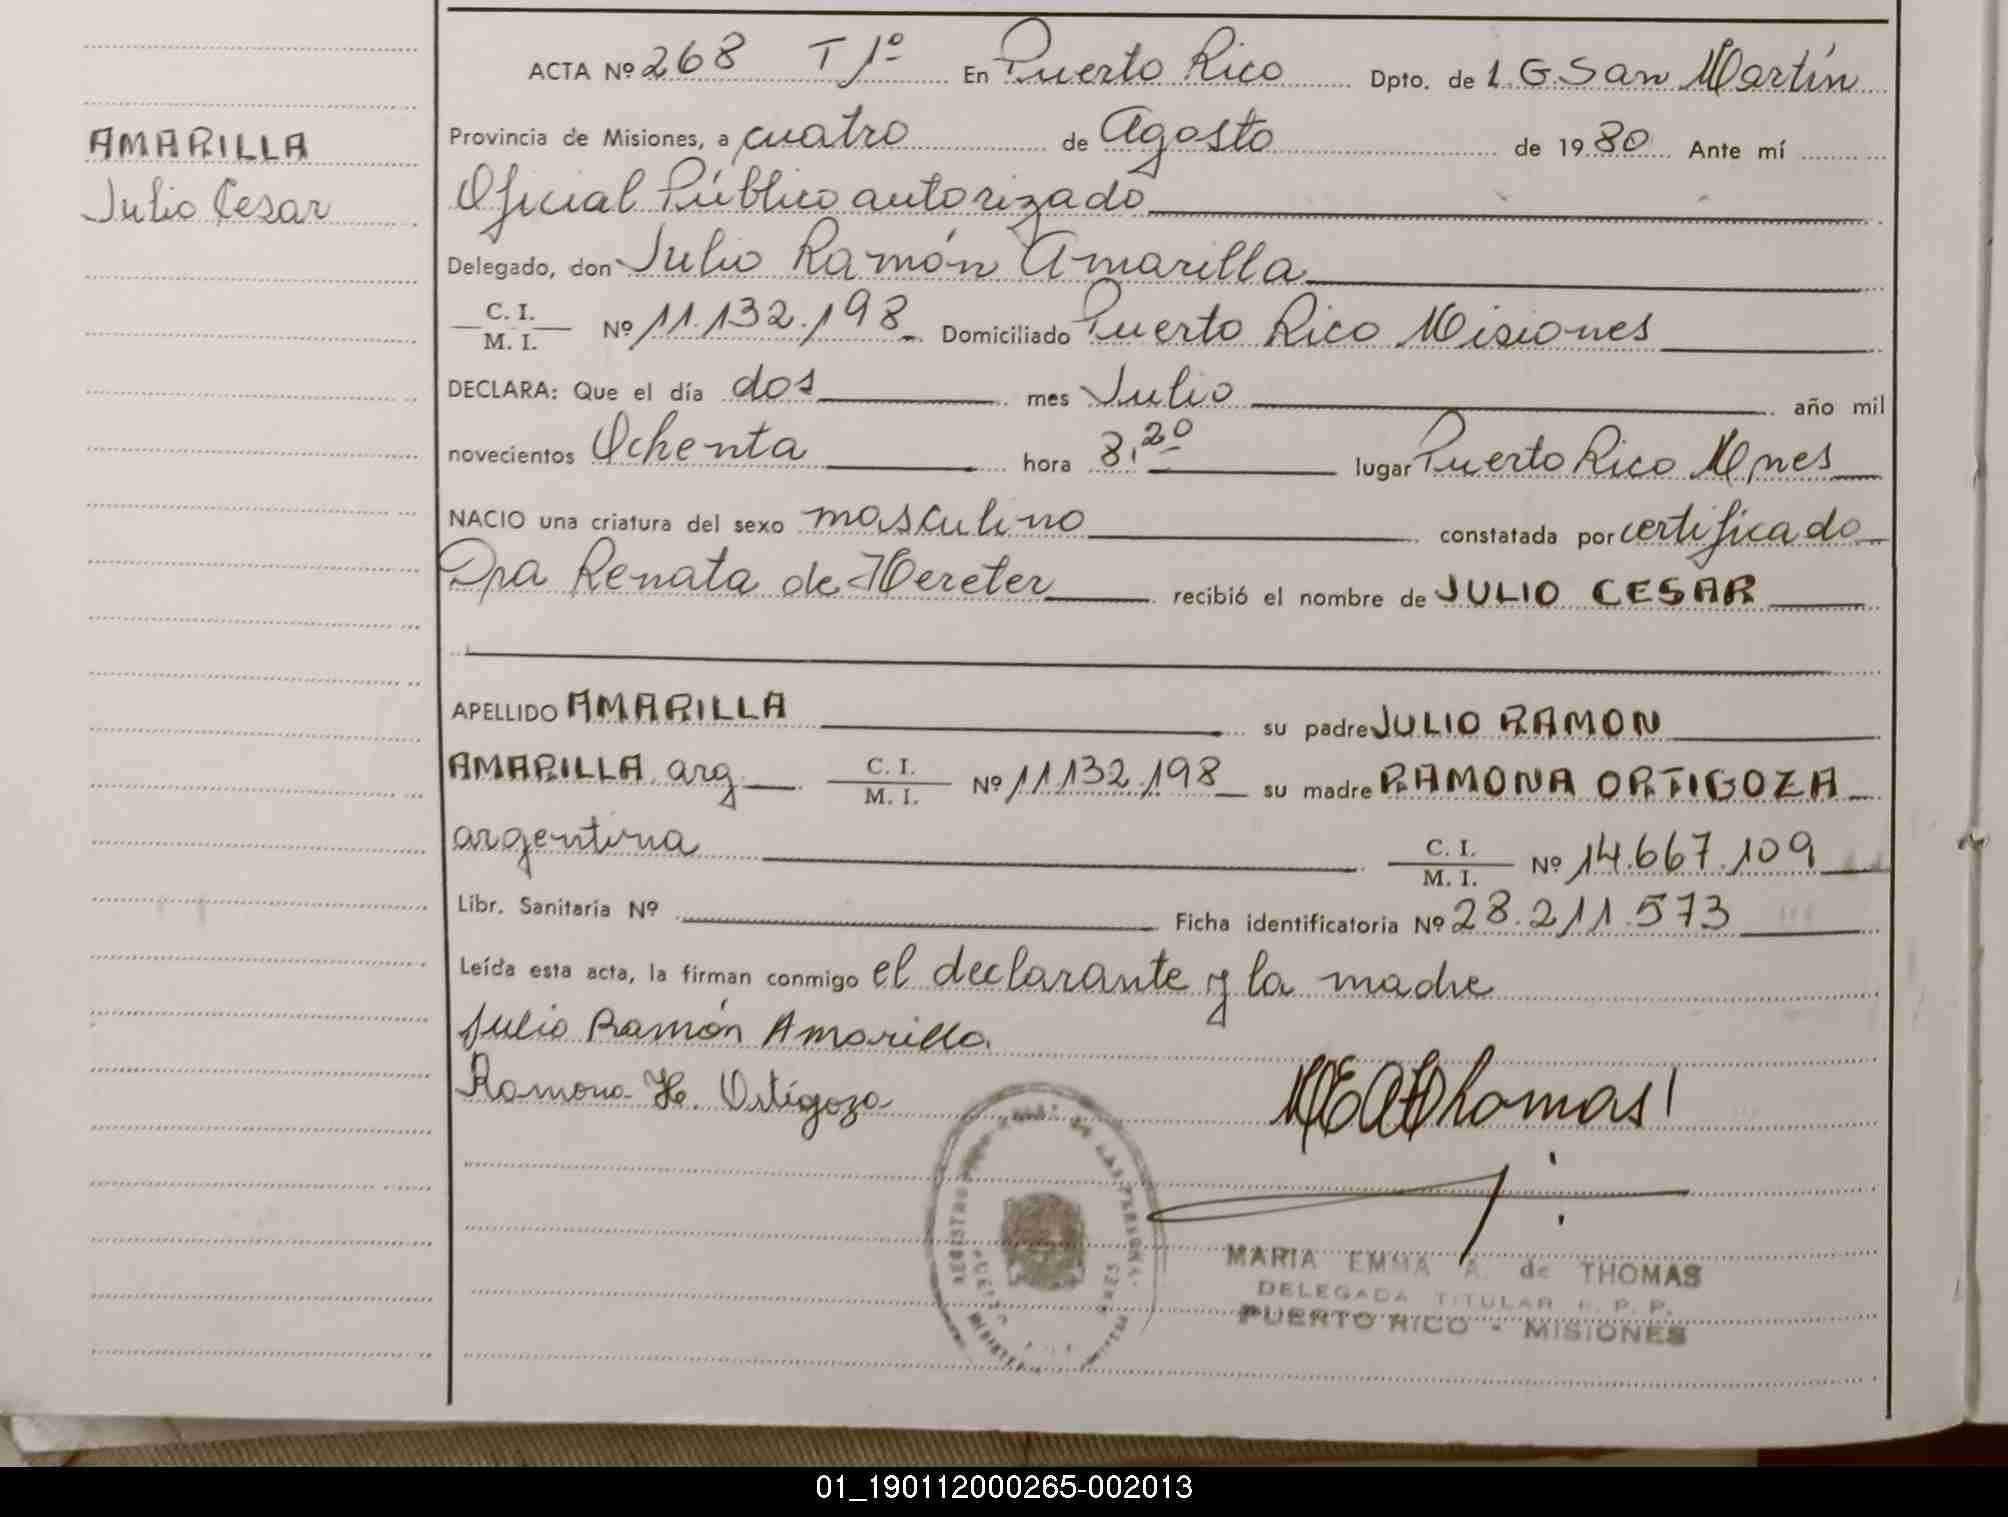 ACTA Nº 268 T 1º En Puerto Rico Dpto. de L. G. San Martín
AMARILLA
Julio Cesar
Provincia de Misiones, a cuatro de Agosto de 1980 Ante mí
Oficial Público autorizado
Delegado, don Julio Ramón Amarilla
C. I.
M. I. Nº 11.132.198 Domiciliado Puerto Rico Misiones
DECLARA: Que el día dos mes Julio año mil
novecientos Ochenta hora 8,20 lugar Puerto Rico Mnes
NACIO una criatura del sexo masculino constatada por certificado
Dra Renata de Hereter recibió el nombre de JULIO CESAR
APELLIDO AMARILLA su padre JULIO RAMON
AMARILLA arg C. I.
M. I. Nº 11.132.198 su madre RAMONA ORTIGOZA
argentina C. I.
M. I. Nº 14.667.109
Libr. Sanitaria Nº Ficha identificatoria Nº 28.211.573
Leída esta acta, la firman conmigo el declarante y la madre
Julio Ramón Amarilla
Ramona H. Ortigoza
MEAThomas
REGISTRO DE LAS PERSONAS
MARIA EMMA A. de THOMAS
DELEGADA TITULAR R. P. P.
PUERTO RICO - MISIONES
01_190112000265-002013